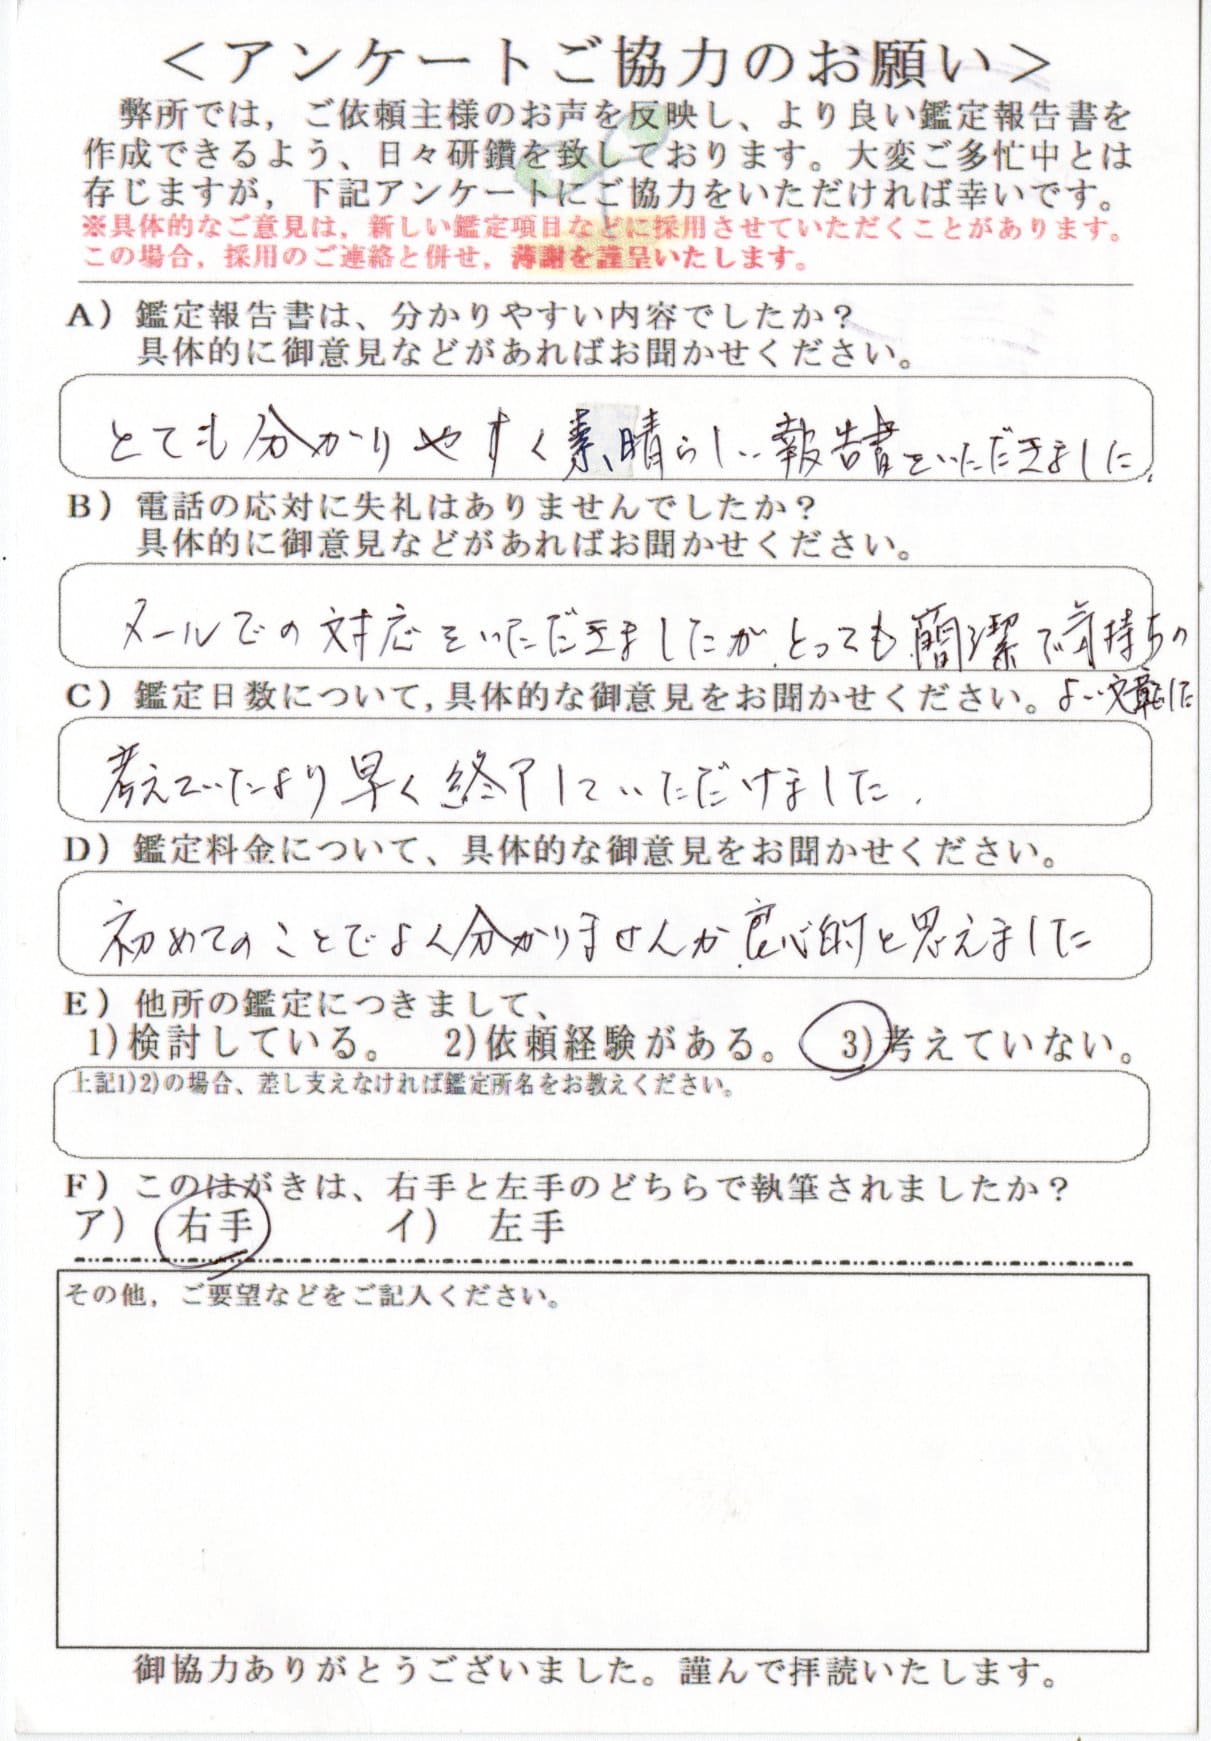 ＜アンケートご協力のお願い＞
弊所では，ご依頼主様のお声を反映し、より良い鑑定報告書を
作成できるよう、日々研鑽を致しております。大変ご多忙中とは
存じますが，下記アンケートにご協力をいただければ幸いです。
※具体的なご意見は，新しい鑑定項目などに採用させていただくことがあります。
この場合，採用のご連絡と併せ，薄謝を謹呈いたします。
A）鑑定報告書は、分かりやすい内容でしたか？
具体的に御意見などがあればお聞かせください。
とても分かりやすく素晴らしい報告書をいただきました.
B）電話の応対に失礼はありませんでしたか？
具体的に御意見などがあればお聞かせください。
メールでの対応をいただきましたが、とっても簡潔で気持ちの
よい文章でした
C）鑑定日数について，具体的な御意見をお聞かせください。
考えていたより早く終了していただけました.
D）鑑定料金について、具体的な御意見をお聞かせください。
初めてのことでよく分かりませんが、良心的と思えました
E）他所の鑑定につきまして、
1)検討している。 2)依頼経験がある。 3)考えていない。
上記1)2)の場合、差し支えなければ鑑定所名をお教えください。
F）このはがきは、右手と左手のどちらで執筆されましたか？
ア） 右手 イ） 左手
その他，ご要望などをご記入ください。
御協力ありがとうございました。謹んで拝読いたします。